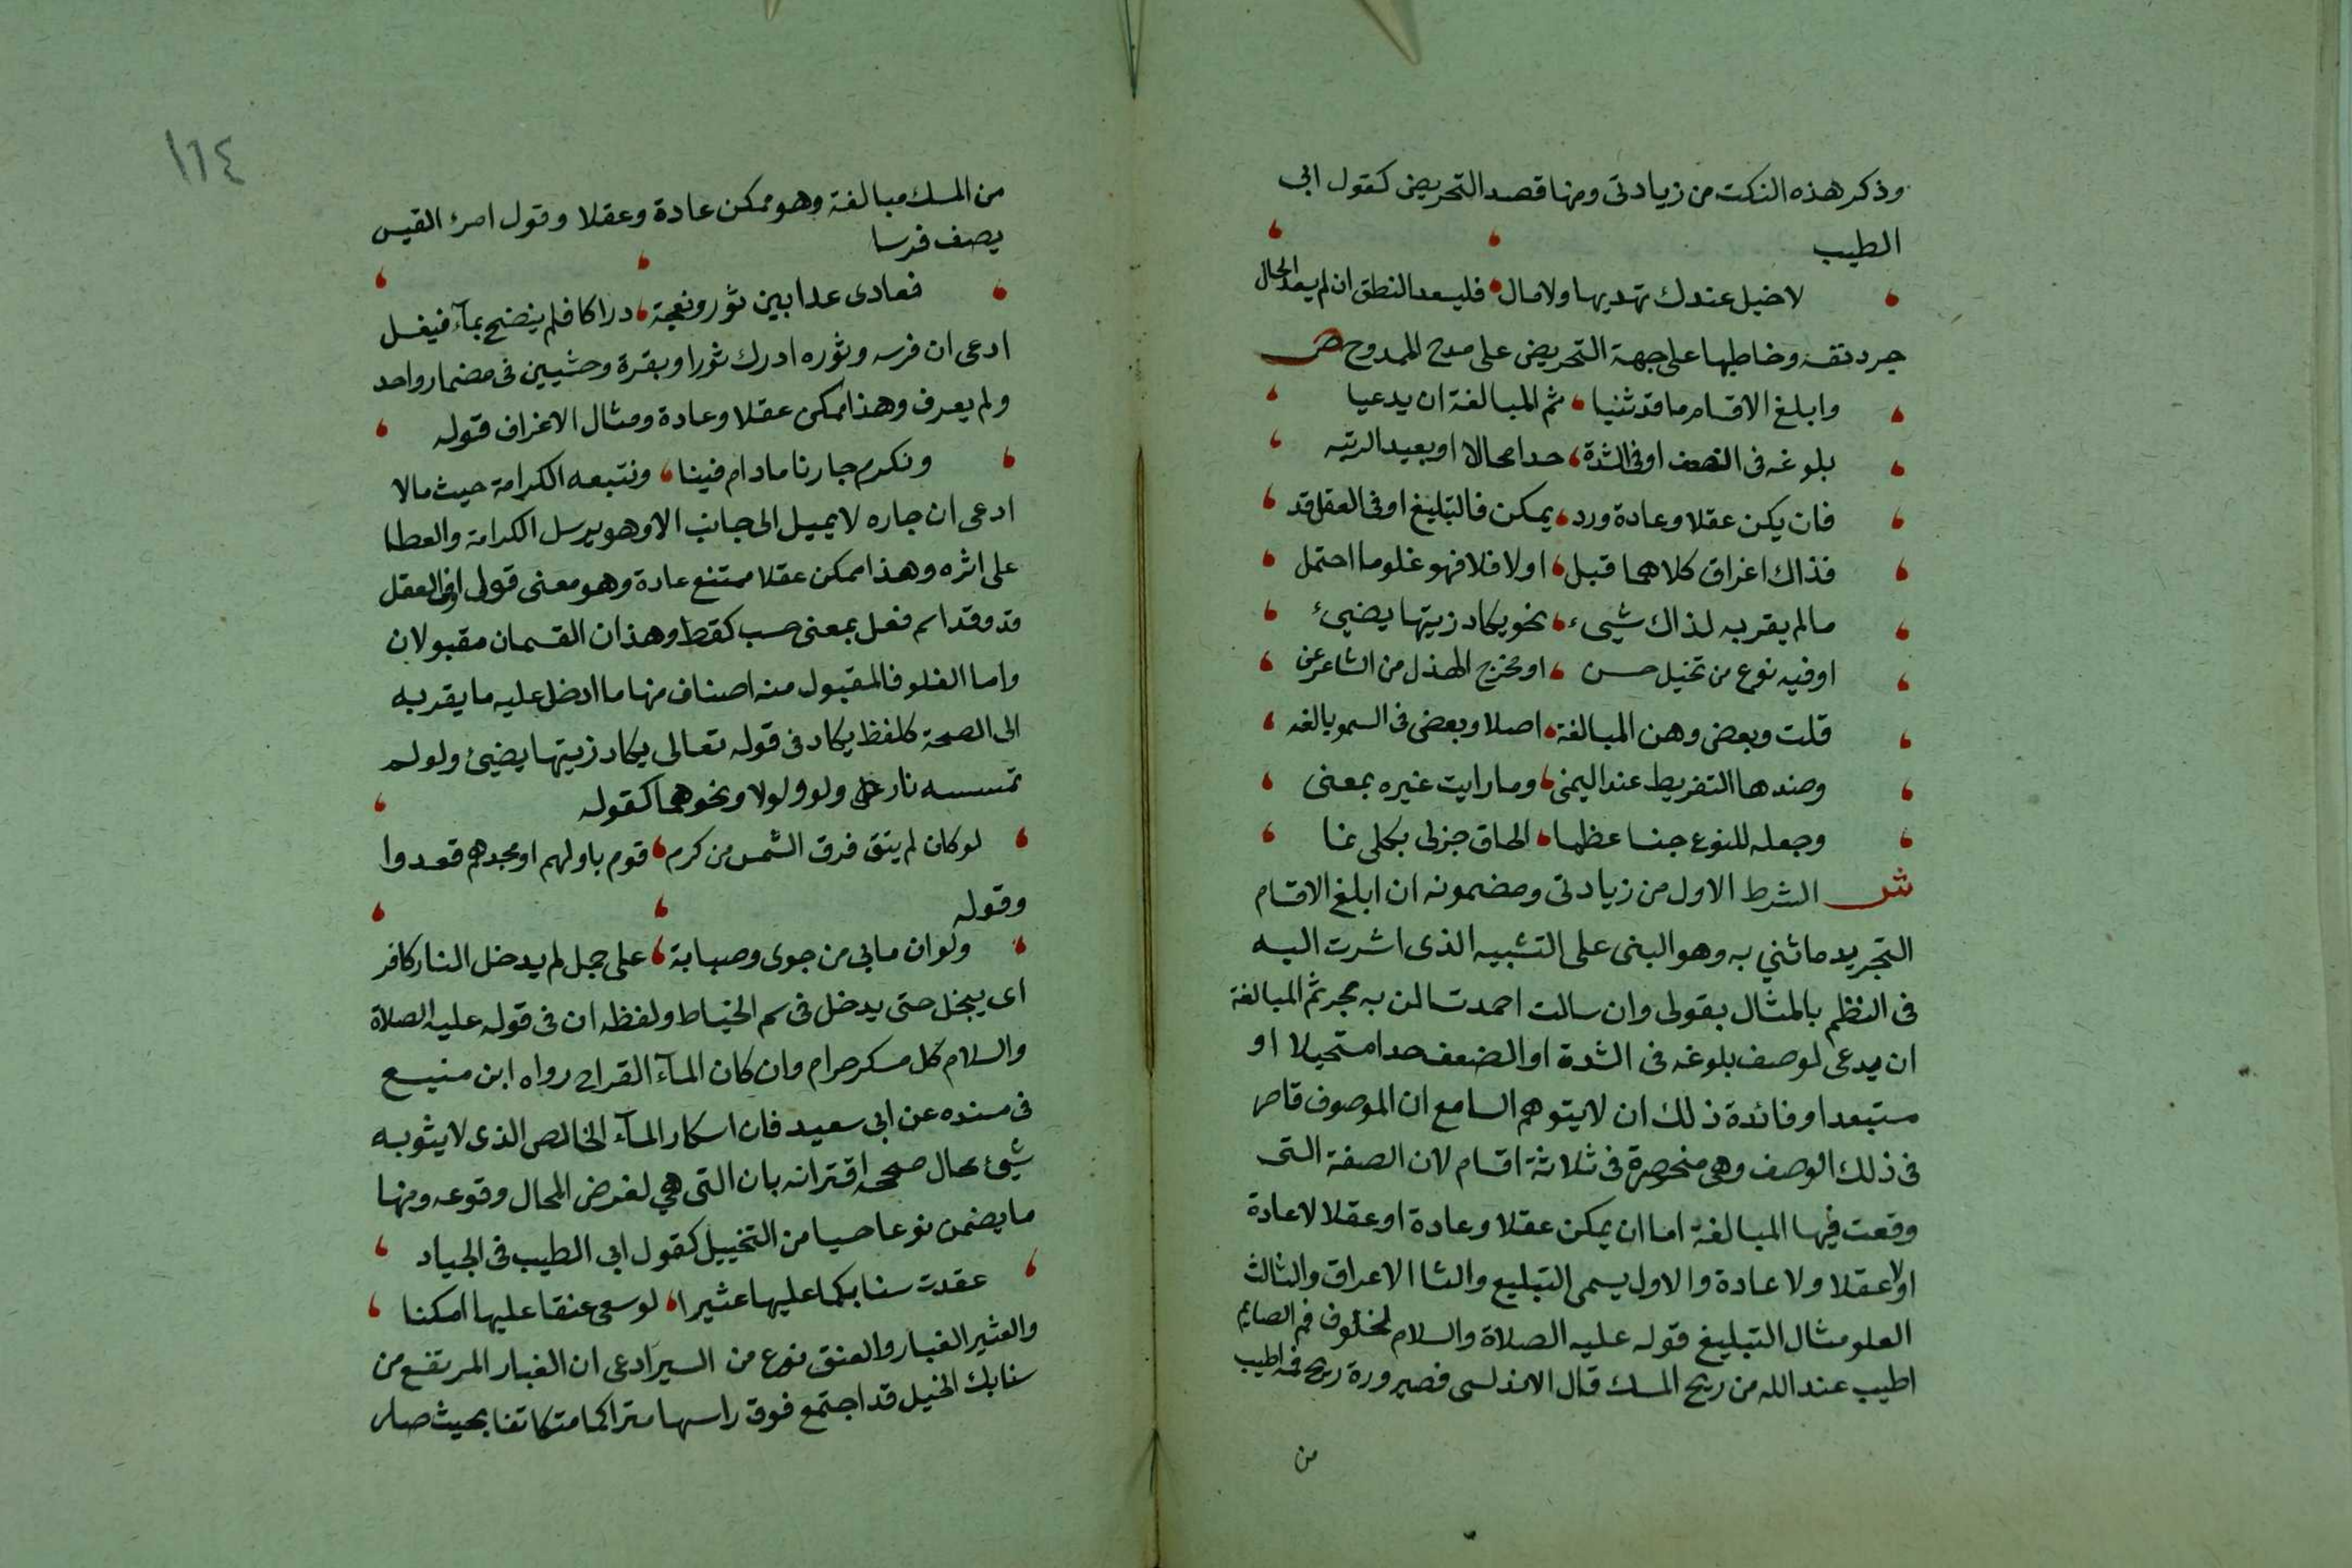 وذكر هذه النكت من زيادتى ومنها قصد التحريض كقول ابى
الطيب
لا خيل عندك تهديها ولا مال فليسعد النطق ان لم يسعد الحال
جرد نفسه وخاطبها على جهة التحريض على مدح الممدوح ص
وابلغ الاقسام ما قد ثنيا ثم المبالغة ان يدعيا
بلوغه فى الضعف او فى الشدة حدا محالا او بعيد الرتبه
فان يكن عقلا وعادة ورد يمكن فالتبليغ او فى العقل قد
فذاك اغراق كلاهما قبل اولا فلا فهو غلو ما احتمل
ما لم يقربه لذاك شيىء نحو يكاد زيتها يضيئ
او فيه نوع من تخيل حسن او مخرج الهذل من الشاعر عن
قلت وبعض وهن المبالغة اصلا وبعض فى السمو بالغه
وضدها التفريط عند اليمنى وما رايت غيره بمعنى
وجعله للنوع جنسا عظما الحاق جزئى بكلى نما
ش الشرط الاول من زيادتى ومضمونه ان ابلغ الاقسام
التجريد ما ثني به وهو البنى على التشبيه الذى اشرت اليه
فى النظم بالمثال بقولى وان سالت احمد تسالن به بحر ثم المبالغة
ان يدعى لوصف بلوغه فى الشدة او الضعف حدا مستحيلا او
مستبعدا وفائدة ذلك ان لا يتوهم السامع ان الموصوف قاصر
فى ذلك الوصف وهى منحصرة فى ثلاثة اقسام لان الصفة التى
وقعت فيها المبالغة اما ان يمكن عقلا وعادة او عقلا لا عادة
اولا عقلا ولا عادة والاول يسمى التبليع والثا الاعراق والثالث
العلو مثال التبليغ قوله عليه الصلاة والسلام لخلوف فم الصايم
اطيب عند الله من ريح المسك قال الاندلسى فصيرورة ريح فمه اطيب
من
١١٤
من المسك مبالغة وهو ممكن عادة وعقلا وقول امرئ القيس
يصف فرسا
فعادى عدا بين ثور ونعجة دراكا فلم ينضح بمآء فيغسل
ادعى ان فرسه وثوره ادرك ثورا وبقرة وحشيين فى مضمار واحد
ولم يعرف وهذا ممكن عقلا وعادة ومثال الاغراف قوله
ونكرم جارنا مادام فينا ونتبعه الكرامة حيث مالا
ادعى ان جاره لا يميل الى جانب الا وهو يرسل الكرامة والعطا
على اثره وهذا ممكن عقلا ممتنع عادة وهو معنى قولى او فى العقل
قد وقد اسم فعل بمعنى حسب كقط وهذان القسمان مقبولان
واما الغلو فالمقبول منه اصناف منها ما ادخل عليه ما يقربه
الى الصحة كلفظ يكاد فى قوله تعالى يكاد زيتها يضيئ ولو لم
تمسسه نار ولو ولولا ونحوهما كقوله
لو كان لم يتق فرق الشمس من كرم قوم باولهم او مجدهم قعدوا
وقوله
ولو ان مابى من جوى وصبابة على جمل لم يدخل النار كافر
اى ينحل حتى يدخل فى سم الخياط ولفظه ان فى قوله عليه الصلاة
والسلام كل مسكر حرام وان كان المآء القراح رواه ابن منيع
فى مسنده عن ابى سعيد فان اسكار المآء الخالص الذى لا يشوبه
شيئ محال صححه اقترانه بان التى هي لفرض المحال وقوعه ومنها
ما يضمن نوعا حسيا من التخييل كقول ابى الطيب فى الجياد
عقدت سنابكها عليها عثيرا لو سعى عنقا عليها امكنا
والعثير الغبار والعنق نوع من السير ادعى ان الغبار المرتفع من
سنابك الخيل قد اجتمع فوق راسها متراكما متكاتفا بحيث صار